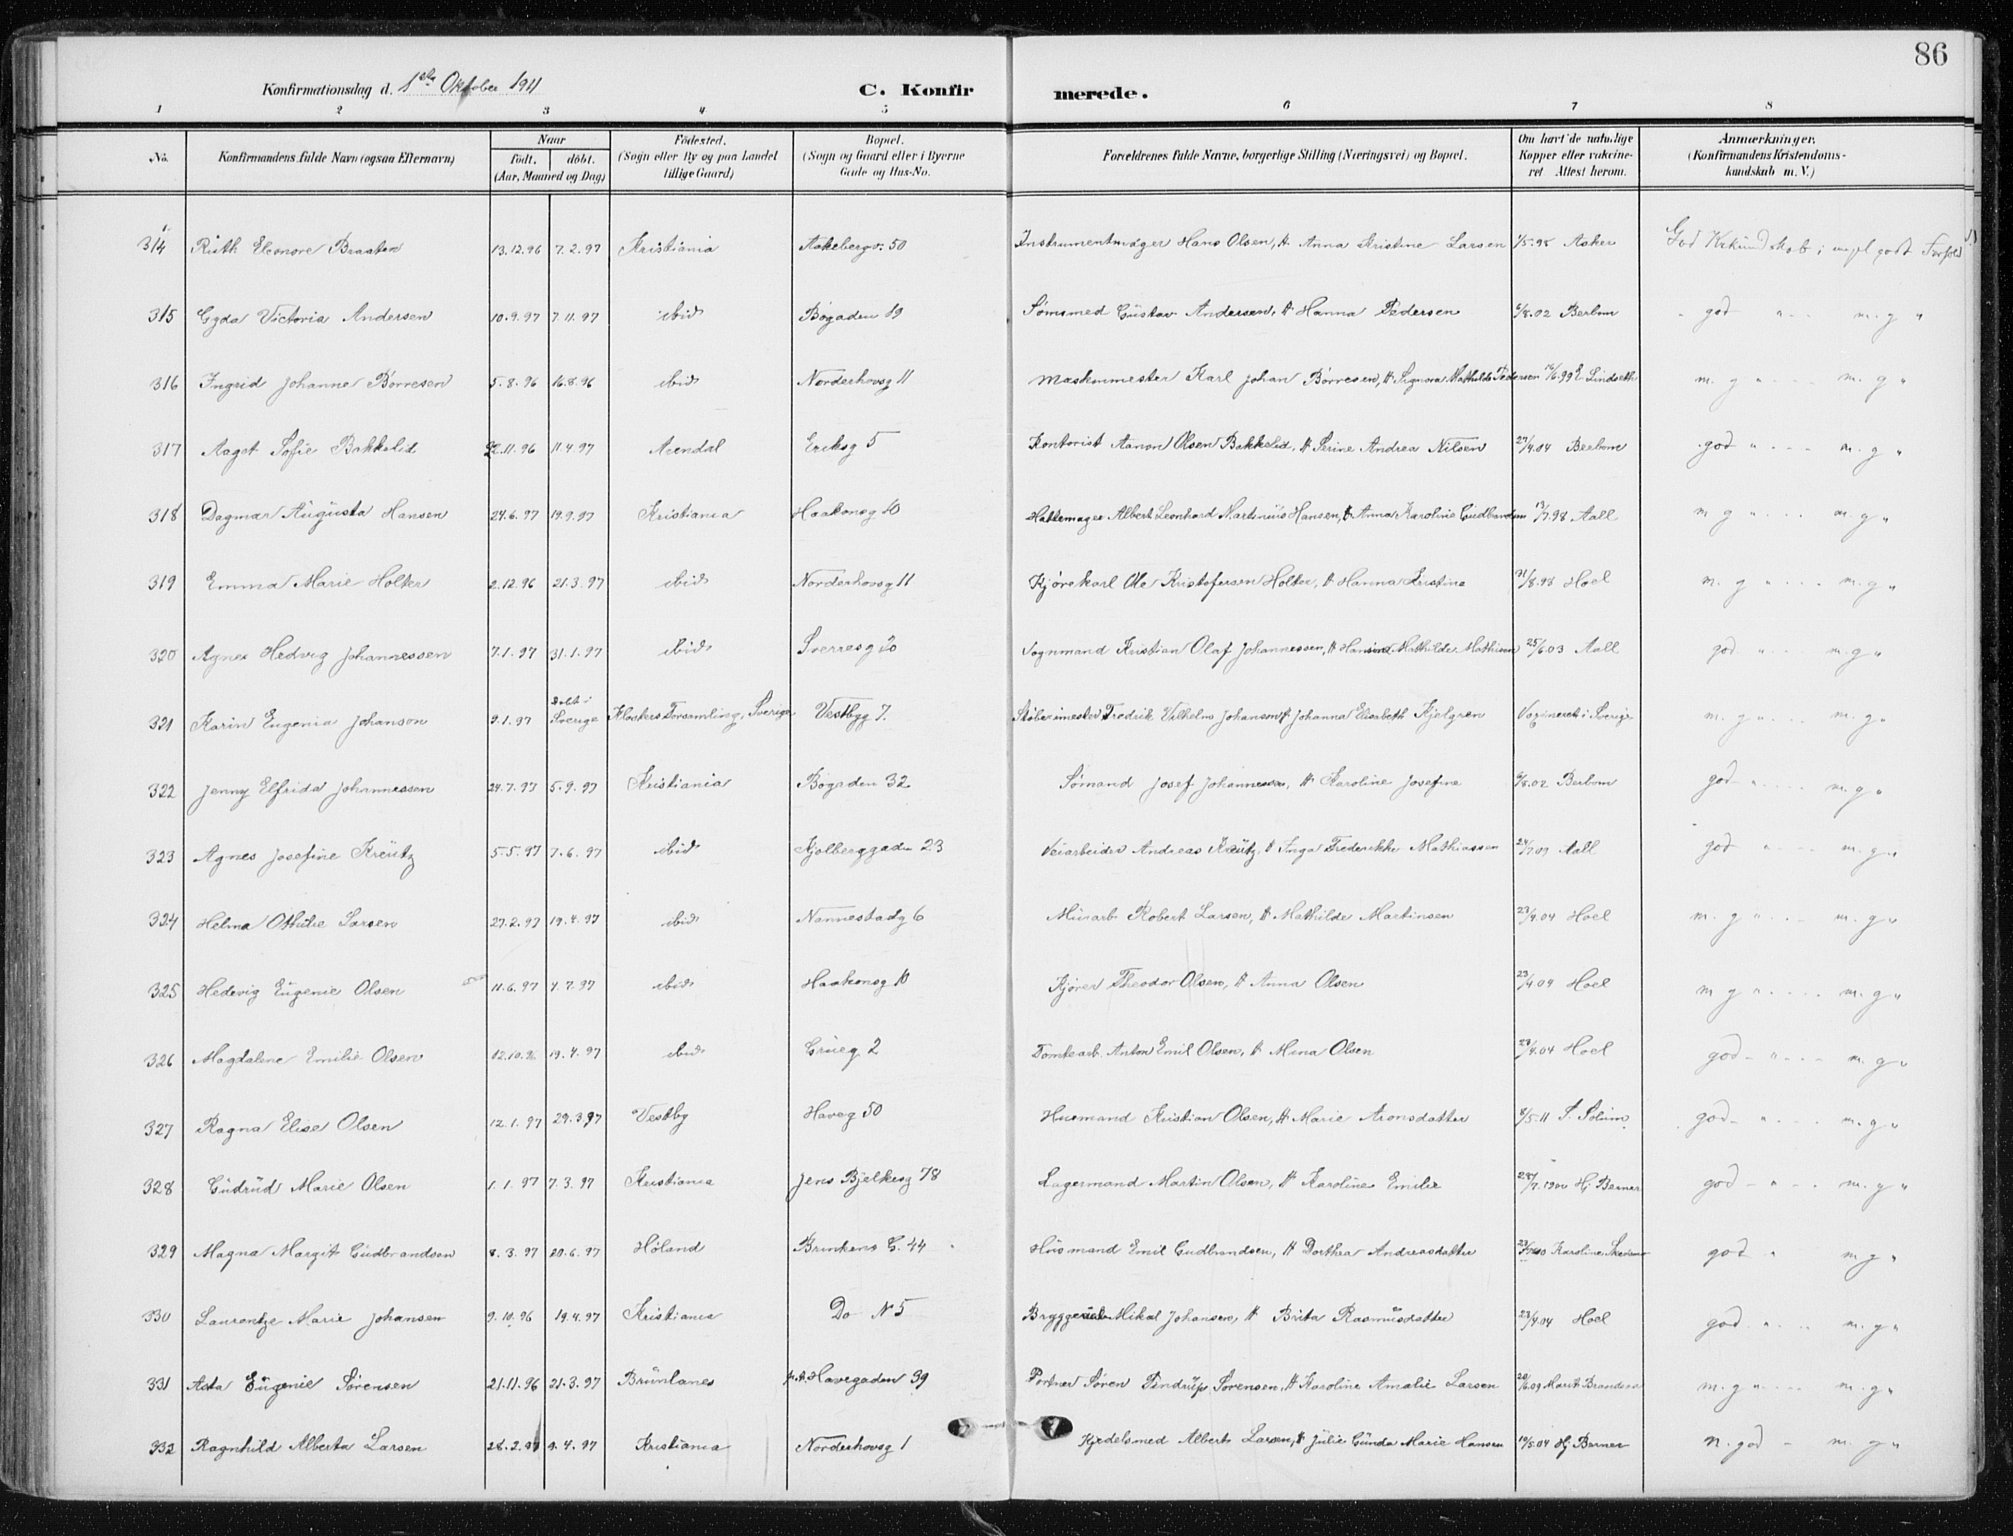 86
Konfirmationsdag d. 1ste Oktober 1911 C. Konfirmerede.
1 2 3 4 5 6 7 8
No. Konfirmandens fulde Navn (ogsaa Efternavn) Naar födt. döbt. (Aar, Maaned og Dag) Födested. (Sogn eller By og paa Landet tillige Gaard) Bopæl. (Sogn og Gaard eller i Byerne Gade og Hus-No. Forældrenes fulde Navne, borgerlige Stilling (Næringsvei) og Bopæl. Om havt de naturlige Kopper eller vakcineret Attest herom. Anmærkninger. (Konfirmandens Kristendomskundskab m. V.)
314 Ruth Eleonore Braaten 13.12.96 7.2.97 Kristiania Aakebergv. 50 Instrumentmager Hans Olsen, & Anna Kristine Larsen Asker God Krkundskab; godt Forhold
315 Gyda Victoria Andersen 10.9.97 7.11.97 ibid Bøgaden 19 Sømsmed Gustav Andersen, & Hanna Pedersen 6/8.02 Berbom god " m. g "
316 Ingrid Johanne Børresen 5.8.96 16.8.96 ibid Norderhovsg 11 Maskinmester Karl Johan Børresen, & Signora Mathilde Pedersen E Lindseth m. g " m. g "
317 Aagot Sofie Bakkelid 22.11.96 11.4.97 Arendal Eriksg 5 Kontorist Aanon Olsen Bakkelid, & Serine Andrea Nilsen 27/4.04 Berbom god " m. g "
318 Dagmar Augusta Hansen 24.6.97 19.9.97 Kristiania Haakonsg 10 Hattemager Albert Leonhard Martinius Hansen, & Anna Karoline Gudbrandsen 13/7.98 Aall m g " m. g "
319 Emma Marie Holter 2.12.96 21.3.97 ibid Norderhovsg 11 Kjørekarl Ole Kristofersen Holter, & Hanna Kristine 31/8.98 Hoel m. g " m. g "
320 Agnes Hedvig Johannessen 7.1.97 31.1.97 ibid Sverresg 20 Sognmand Kristian Olaf Johannessen, & Hansine Mathilde Mathisen 25/6.03 Aall god " m. g "
321 Karin Eugenia Johanson 9.1.97 Døbt i Sverige Klosters Forsamling, Sverige Vestbyg 7. Støberimester Fredrik Vilhelm Johanson, & Johanna Elisabeth Kjelgren Vaxineret i Sverige m. g " m. g "
322 Jenny Elfrida Johannessen 24.7.97 5.9.97 Kristiania Bøgaden 32 Sømand Josef Johannessen, & Karoline Josefine 6/8.02 Berbom god " m. g "
323 Agnes Josefine Kreutz 5.5.97 7.6.97 ibid Kjølberggaden 23 Veiarbeider Andreas Kreutz, & Inga Frederikke Mathiassen Aall god " m. g "
324 Helma Othilie Larsen 27.2.97 19.4.97 ibid Nannestadg 6 Murarb. Robert Larsen, & Mathilde Martinsen 23/4.04 Hoel m. g " m. g "
325 Hedevig Eugenie Olsen 11.6.97 4.7.97 ibid Haakonsg 10 Kjører Theodor Olsen, & Anna Olsen 23/4.04 Hoel m g " m. g "
326 Magdaline Emilie Olsen 12.10.96 19.4.97 ibid Grueg 2 Tomtearb. Anton Emil Olsen, & Mina Olsen 23/4.04 Hoel god " m. g "
327 Ragna Elise Olsen 12.1.97 29.3.97 Vestby Haveg 50 Husmand Kristian Olsen, & Marie Aronsdatter 8/5.11 S. Solum god " m. g "
328 Gudrud Marie Olsen 1.1.97 7.3.97 Kristiania Jens Bjelkesg 78 Lagermand Martin Olsen, & Karoline Emilie 28/7.1900 Hj Berner god " m. g "
329 Magna Margit Gudbrandsen 8.3.97 20.6.97 Høland Brinkens G. 44 Husmand Emil Gudbrandsen, & Dorthea Andreasdatter Karoline god " m g "
330 Laurentze Marie Johansen 9.10.96 19.4.97 Kristiania Do N 5 Bryggeriarb. Mikal Johansen, & Brita Rasmusdatter 23/4.04 Hoel god " m. g "
331 Asta Eugenie Sørensen 21.11.96 21.3.97 Brunlanes p.t. Havegaden 39 Portner Søren Pindrup Sørensen, & Karoline Amalie Larsen 20/6.09 Marit m. g " m. g "
332 Ragnhild Alberta Larsen 28.2.97 9.4.97 Kristiania Norderhovsg 1 Kjedelsmed Albert Larsen, & Julie Gunda Marie Hansen 19/5.04 Hj Berner n. god " m. g "